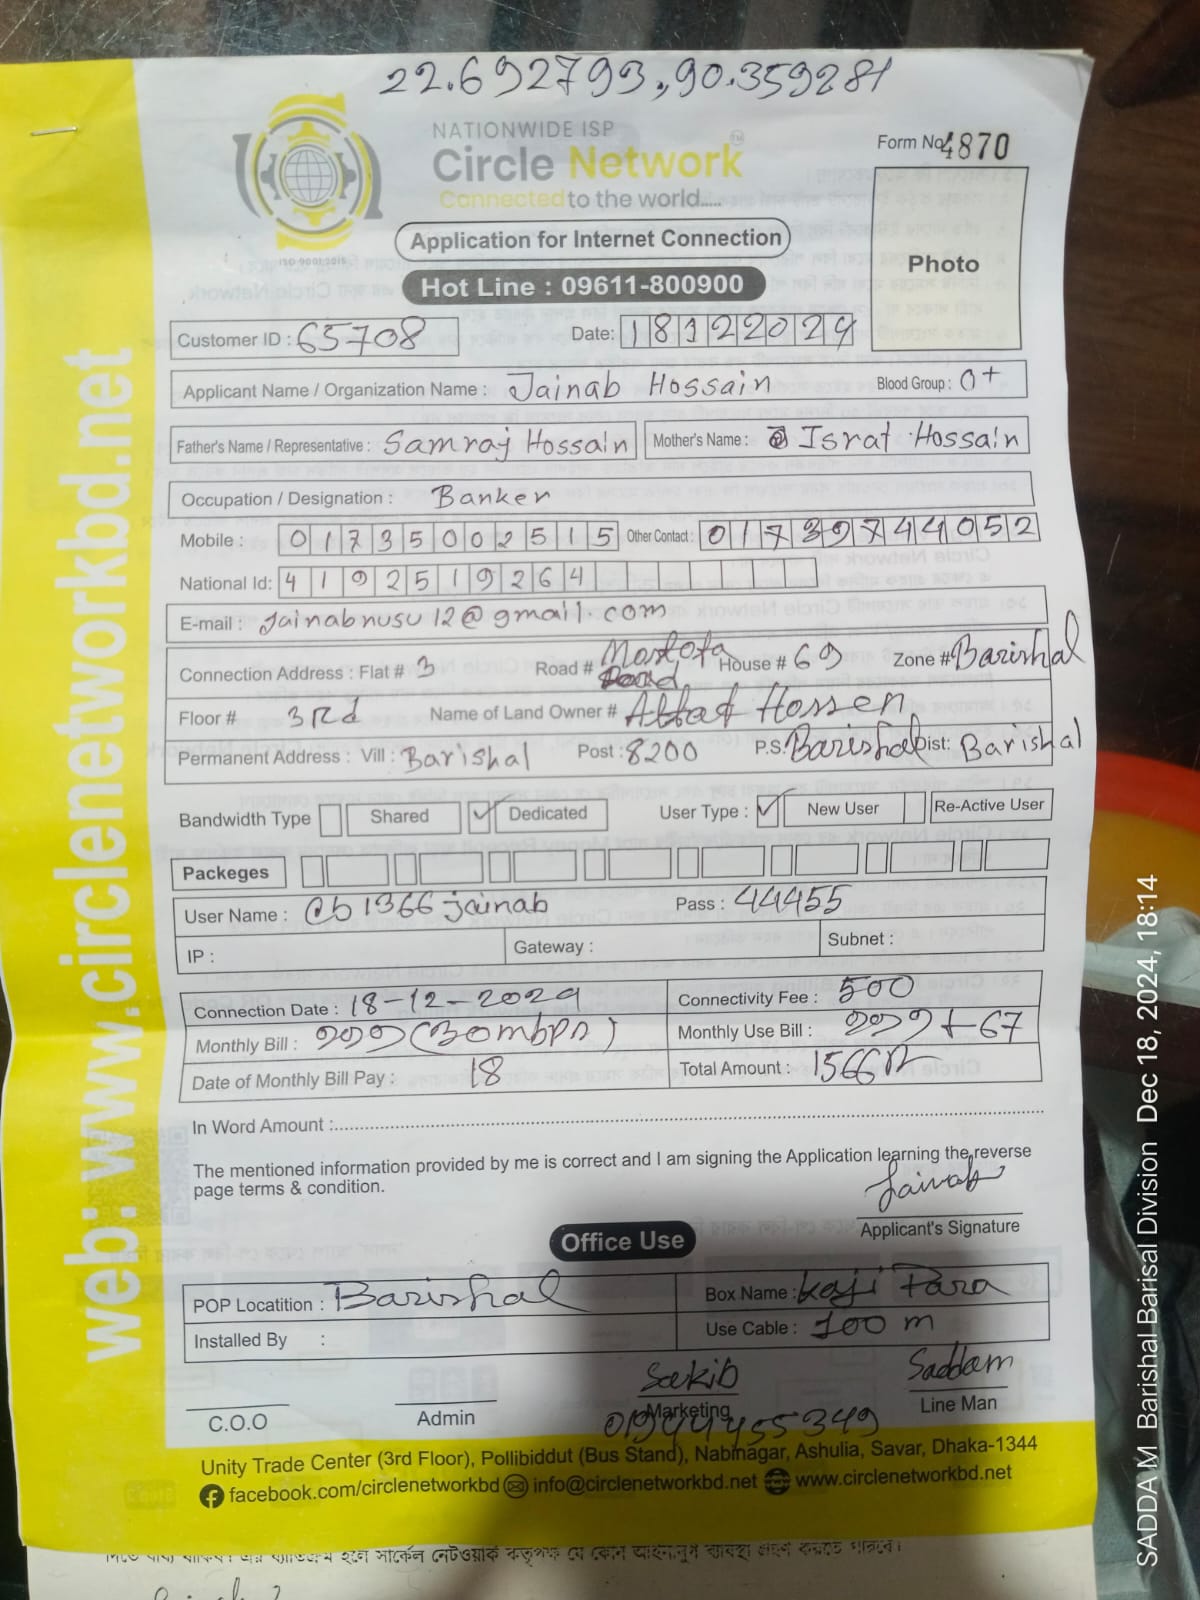 22.692793,90.359281
NATIONWIDE ISP
Circle Network™
Connected to the world.....
ISO 9001:2015
Form No 4870
Photo
Application for Internet Connection
Hot Line : 09611-800900
Customer ID : 65708 Date: 18122024
Applicant Name / Organization Name : Jainab Hossain Blood Group : O+
Father's Name / Representative : Samraj Hossain Mother's Name : Israt Hossain
Occupation / Designation : Banker
Mobile : 01735002515 Other Contact : 01739744052
National Id: 4192519264
E-mail : Jainabnusu12@gmail.com
Connection Address : Flat # 3 Road # Mostofa Road House # 69 Zone # Barishal
Floor # 3Rd Name of Land Owner # Hossen
Permanent Address : Vill : Barishal Post : 8200 P.S. Barishal Dist: Barishal
Bandwidth Type Shared Dedicated User Type : New User Re-Active User
Packeges
User Name : cb1366jainab Pass : 44455
IP : Gateway : Subnet :
Connection Date : 18-12-2024 Connectivity Fee : 500
Monthly Bill : ৯৯৯ (30mbps) Monthly Use Bill : ৯৯৯+67
Date of Monthly Bill Pay : 18 Total Amount : 1566
In Word Amount :
The mentioned information provided by me is correct and I am signing the Application learning the reverse
page terms & condition.
Jainab
Applicant's Signature
Office Use
POP Locatition : Barishal Box Name : Kaji Para
Installed By : Use Cable : 100 m
Sakib Saddam
C.O.O Admin Marketing Line Man
01944455349
Unity Trade Center (3rd Floor), Pollibiddut (Bus Stand), Nabinagar, Ashulia, Savar, Dhaka-1344
facebook.com/circlenetworkbd info@circlenetworkbd.net www.circlenetworkbd.net
web: www.circlenetworkbd.net
SADDA M Barishal Barisal Division Dec 18, 2024, 18:14